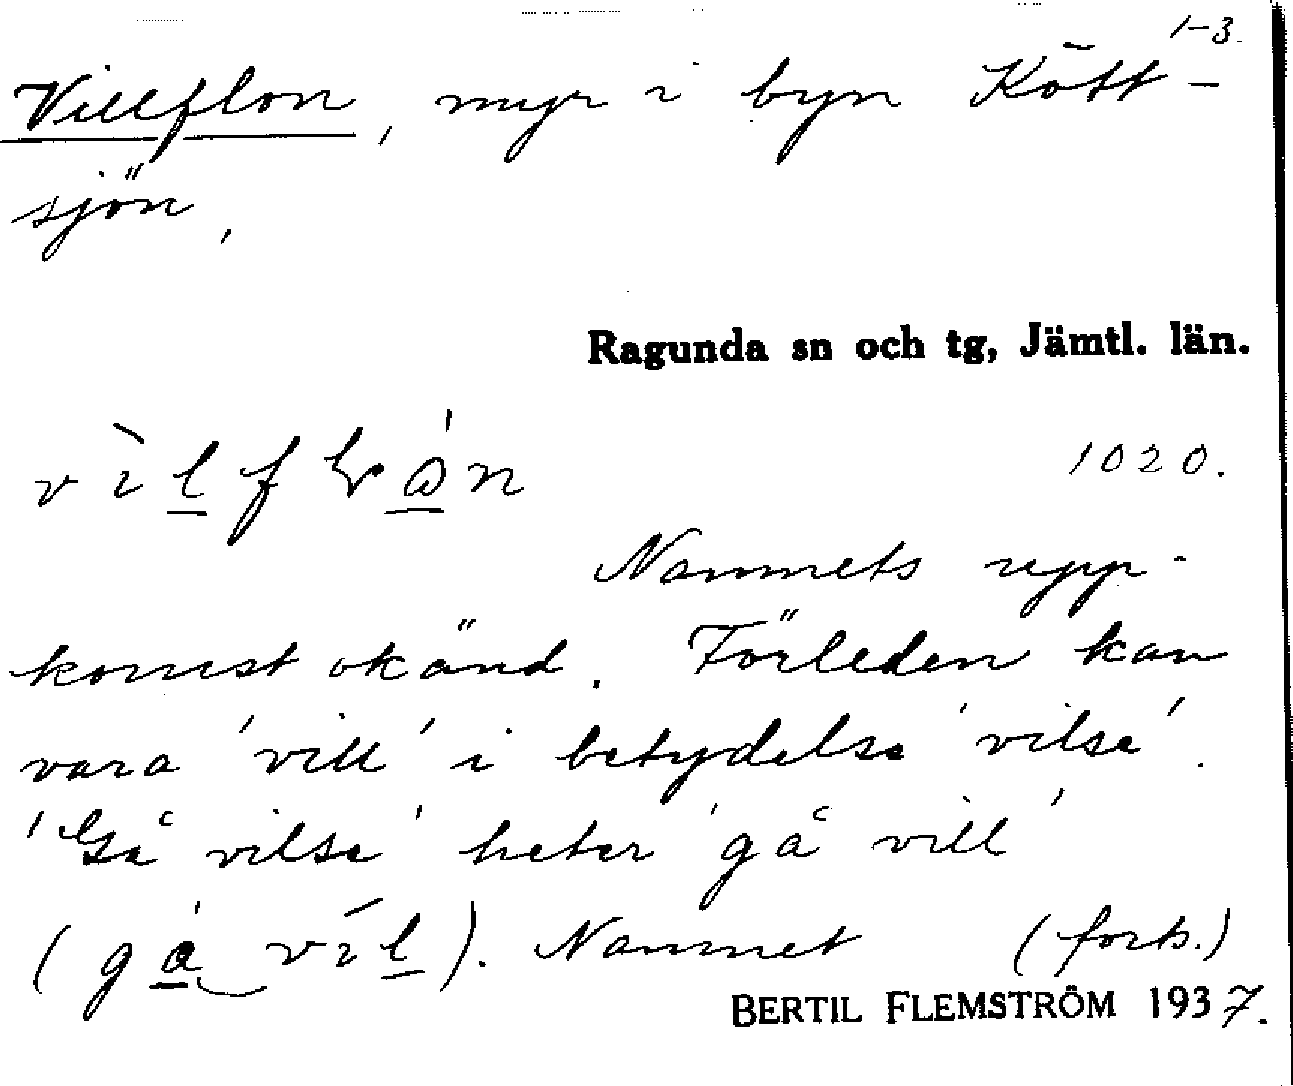 1-3.
Villflon, myr i byn Kött-
sjön,
Ragunda sn och tg, Jämtl. län.
1020.
Namnets upp-
komst okänd. Förleden kan
vara 'vill' i betydelse 'vilse'.
'Gå vilse' heter 'gå vill'
Namnet (forts.)
BERTIL FLEMSTRÖM 1937.